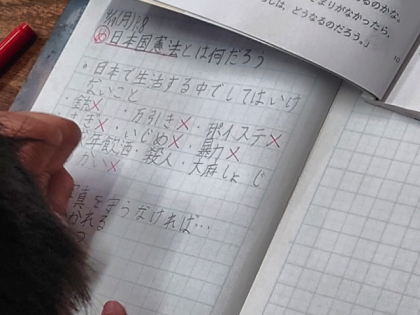 11/1(月)18
め 日本国憲法とは何だろう
・日本で生活する中でしてはいけ
ないこと
万引き×・ポイステ×
・いじめ×・暴力×
年飲酒・殺人・大麻しょじ
×
を守らなければ…
かれる
まりがなかったら、
しは、どうなるのだろう。」
10